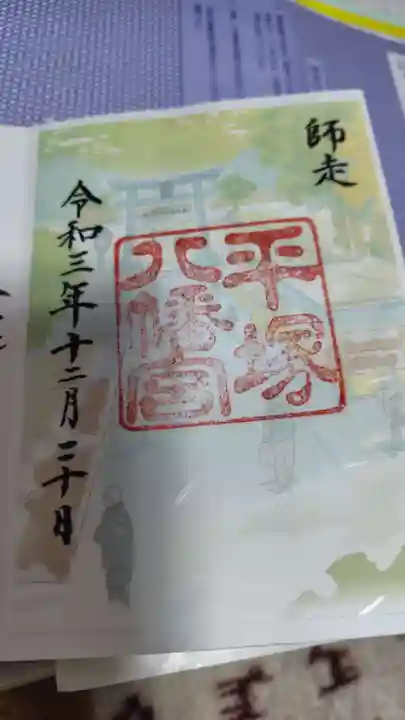 師走
平塚
八幡宮
令和三年十二月二十日